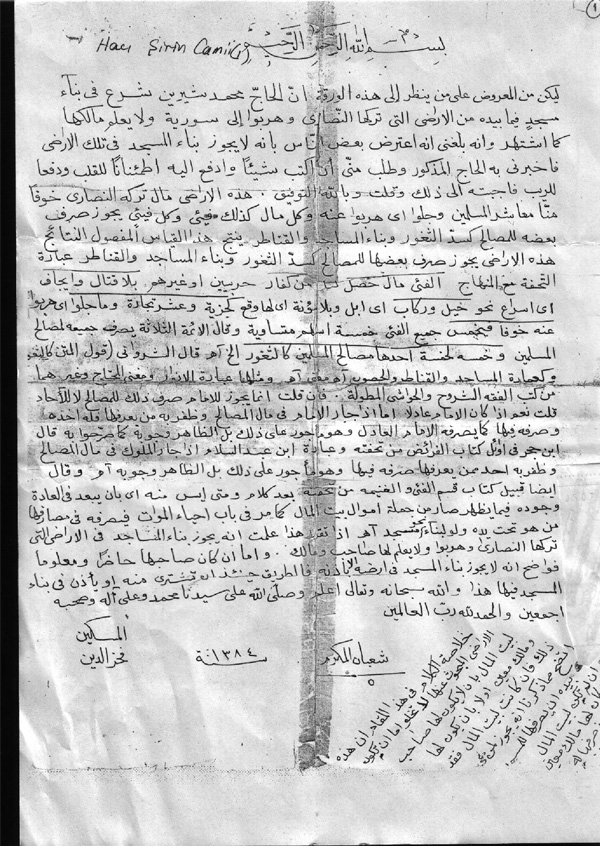 ١
Hacı Şirin Camii (١)
بسم الله الرحمن الرحيم
ليكن من المعروض على من ينظر إلى هذه الورقة انّ الحاجّ محمد شيرين شرع في بناء
مسجد فيما بيده من الارضى التى تركها النصارى وهربوا إلى سورية ولا يعلم مالكها
كما اشتهر وانه بلغنى انه اعترض بعض الناس بانه لا يجوز بناء المسجد في تلك الاراضى
فاخبرنى به الحاج المذكور وطلب منّى أن اكتب شيئًا وادفع اليه اطمئنانًا للقلب ودفعا
للريب فاجبته الى ذلك وقلت وبالله التوفيق . هذه الاراضى مال تركه النصارى خوفا
منّا معاشر المسلمين وجلوا اى هربوا عنه وكل مال كذلك فيئ وكل فيئ يجوز صرف
بعضه للمصالح كسدّ الثغور وبناء المساجد والقناطر ينتج هذا القياس المفصول النتائج
هذه الاراضى يجوز صرف بعضها للمصالح كسدّ الثغور وبناء المساجد والقناطر عبارة
التحفة مع المنهاج الفئ مال حصل لنا من كفار حربيين اوغيرهم بلا قتال وايجاف
اى اسراع نحو خيل وركاب اى ابل وبلا مؤنة اى لها وقع كجزية وعشر تجارة وما جلوا اى هربوا
عنه خوفا فيخمس جميع الفئ خمسة اسهم متساوية وقال الائمة الثلاثة يصرف جميعه لمصالح
المسلمين وخمسه لخمسة احدها مصالح المسلمين كالثغور الخ آهـ قال الشروانى (قول المتن كالثغور
وكعمارة المساجد والقناطر والحصون آهـ مغنى آهـ ومثلها عبارة الانوار ومغنى المحتاج وغيرهما
من كتب الفقه الشروح والحواشى المطولة . فان قلت انما يجوز للامام صرف ذلك للمصالح لا للآحاد
قلت نعم اذا كان الامام عادلا اما اذا جار الامام في مال المصالح وظفر به من يعرفها فله اخذه
وصرفه فيها كما يصرفه الامام العادل وهو مأجور على ذلك بل الظاهر وجوبه كما صرّحوا به قال
ابن حجر في اوّل كتاب الفرائض من تحفته وعبارة ابن عبد السلام اذا جار الملوك في مال المصالح
وظفر به احد ممن يعرفها صرفه فيها وهو مأجور على ذلك بل الظاهر وجوبه آهـ وقال
ايضا قبيل كتاب قسم الفئ والغنيمه من تحفته بعد كلام ومتى ايس منه اى بان يبعد في العادة
وجوده فيما يظهر صار من جملة اموال بيت المال كما مر في باب احياء الموات فيصرفه في مصارفها
من هو تحت يده ولو لبناء نحو مسجد آهـ اذا تقرر هذا علمت انه يجوز بناء المساجد في الاراضى التى
تركها النصارى وهربوا ولا يعلم لها صاحب ومالك . واما ان كان صاحبها حاضرًا ومعلوما
فواضح انه لا يجوز بناء المسجد في ارضه الا باذنه فالطريق حينئذ ان تشترى منه او يأذن في بناء
المسجد فيها هذا والله سبحانه وتعالى اعلم وصلّى الله على سيدنا محمد وعلى آله وصحبه
اجمعين والحمد لله ربّ العالمين
شعبان المكرم ٥ سنة ١٣٨٤
المسكين
فخر الدين
خلاصة الكلام في هذا المقام ان هذه
الارضى المهروب عنها لا تخلو اما ان تكون
لبيت المال بان لا يكون لها صاحب
ومالك معين اولا بان يكون لها
ذلك فان كانت لبيت المال فقد